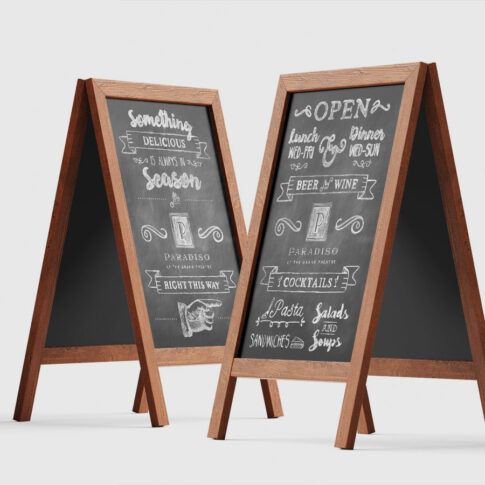 Something
DELICIOUS
IS ALWAYS IN
Season
P
PARADISO
AT THE GRAND THEATRE
RIGHT THIS WAY
OPEN
Lunch & Dinner
WED-FRI WED-SUN
BEER for WINE
P
PARADISO
AT THE GRAND THEATRE
! COCKTAILS !
Pasta
Salads
AND
SANDWICHES
Soups